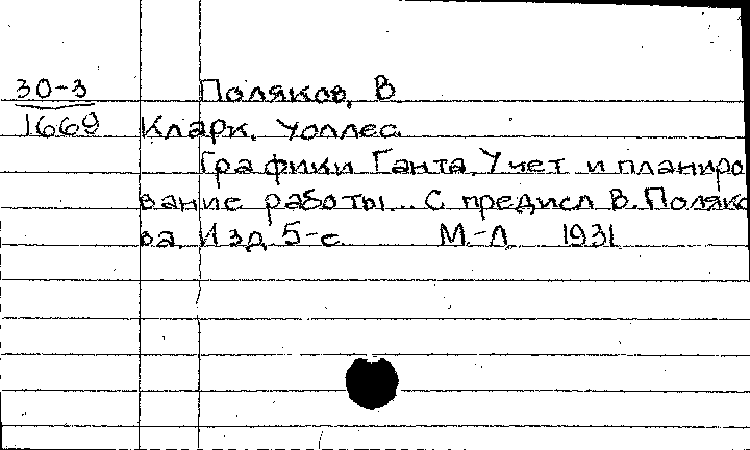 30-3 Поляков, В
1669 Кларк, Уоллес
Графики Ганта. Учет и планиро
вание работы... С предисл В. Поляко
ва. Изд 5-е М.-Л 1931